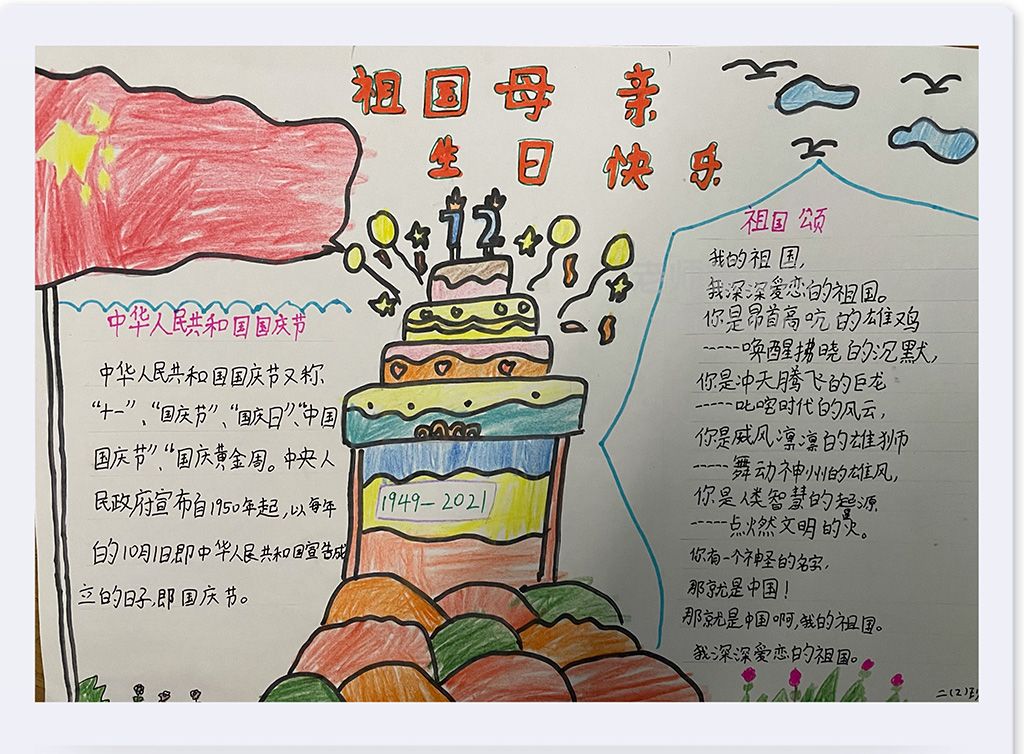 祖国母亲
生日快乐
12
中华人民共和国国庆节
中华人民共和国国庆节又称
“十一”、“国庆节”、“国庆日”、“中国
国庆节”、“国庆黄金周。中央人
民政府宣布自1950年起,以每年
的10月1日,即中华人民共和国宣告成
立的日子,即国庆节。
1949-2021
祖国颂
我的祖国,
我深深爱恋的祖国。
你是昂首高吭的雄鸡
-----唤醒拂晓的沉默,
你是冲天腾飞的巨龙
-----叱咤时代的风云,
你是威风凛凛的雄狮
-----舞动神州的雄风,
你是人类智慧的起源
-----点燃文明的星火。
你有一个神圣的名字,
那就是中国!
那就是中国啊,我的祖国。
我深深爱恋的祖国。
二(2)